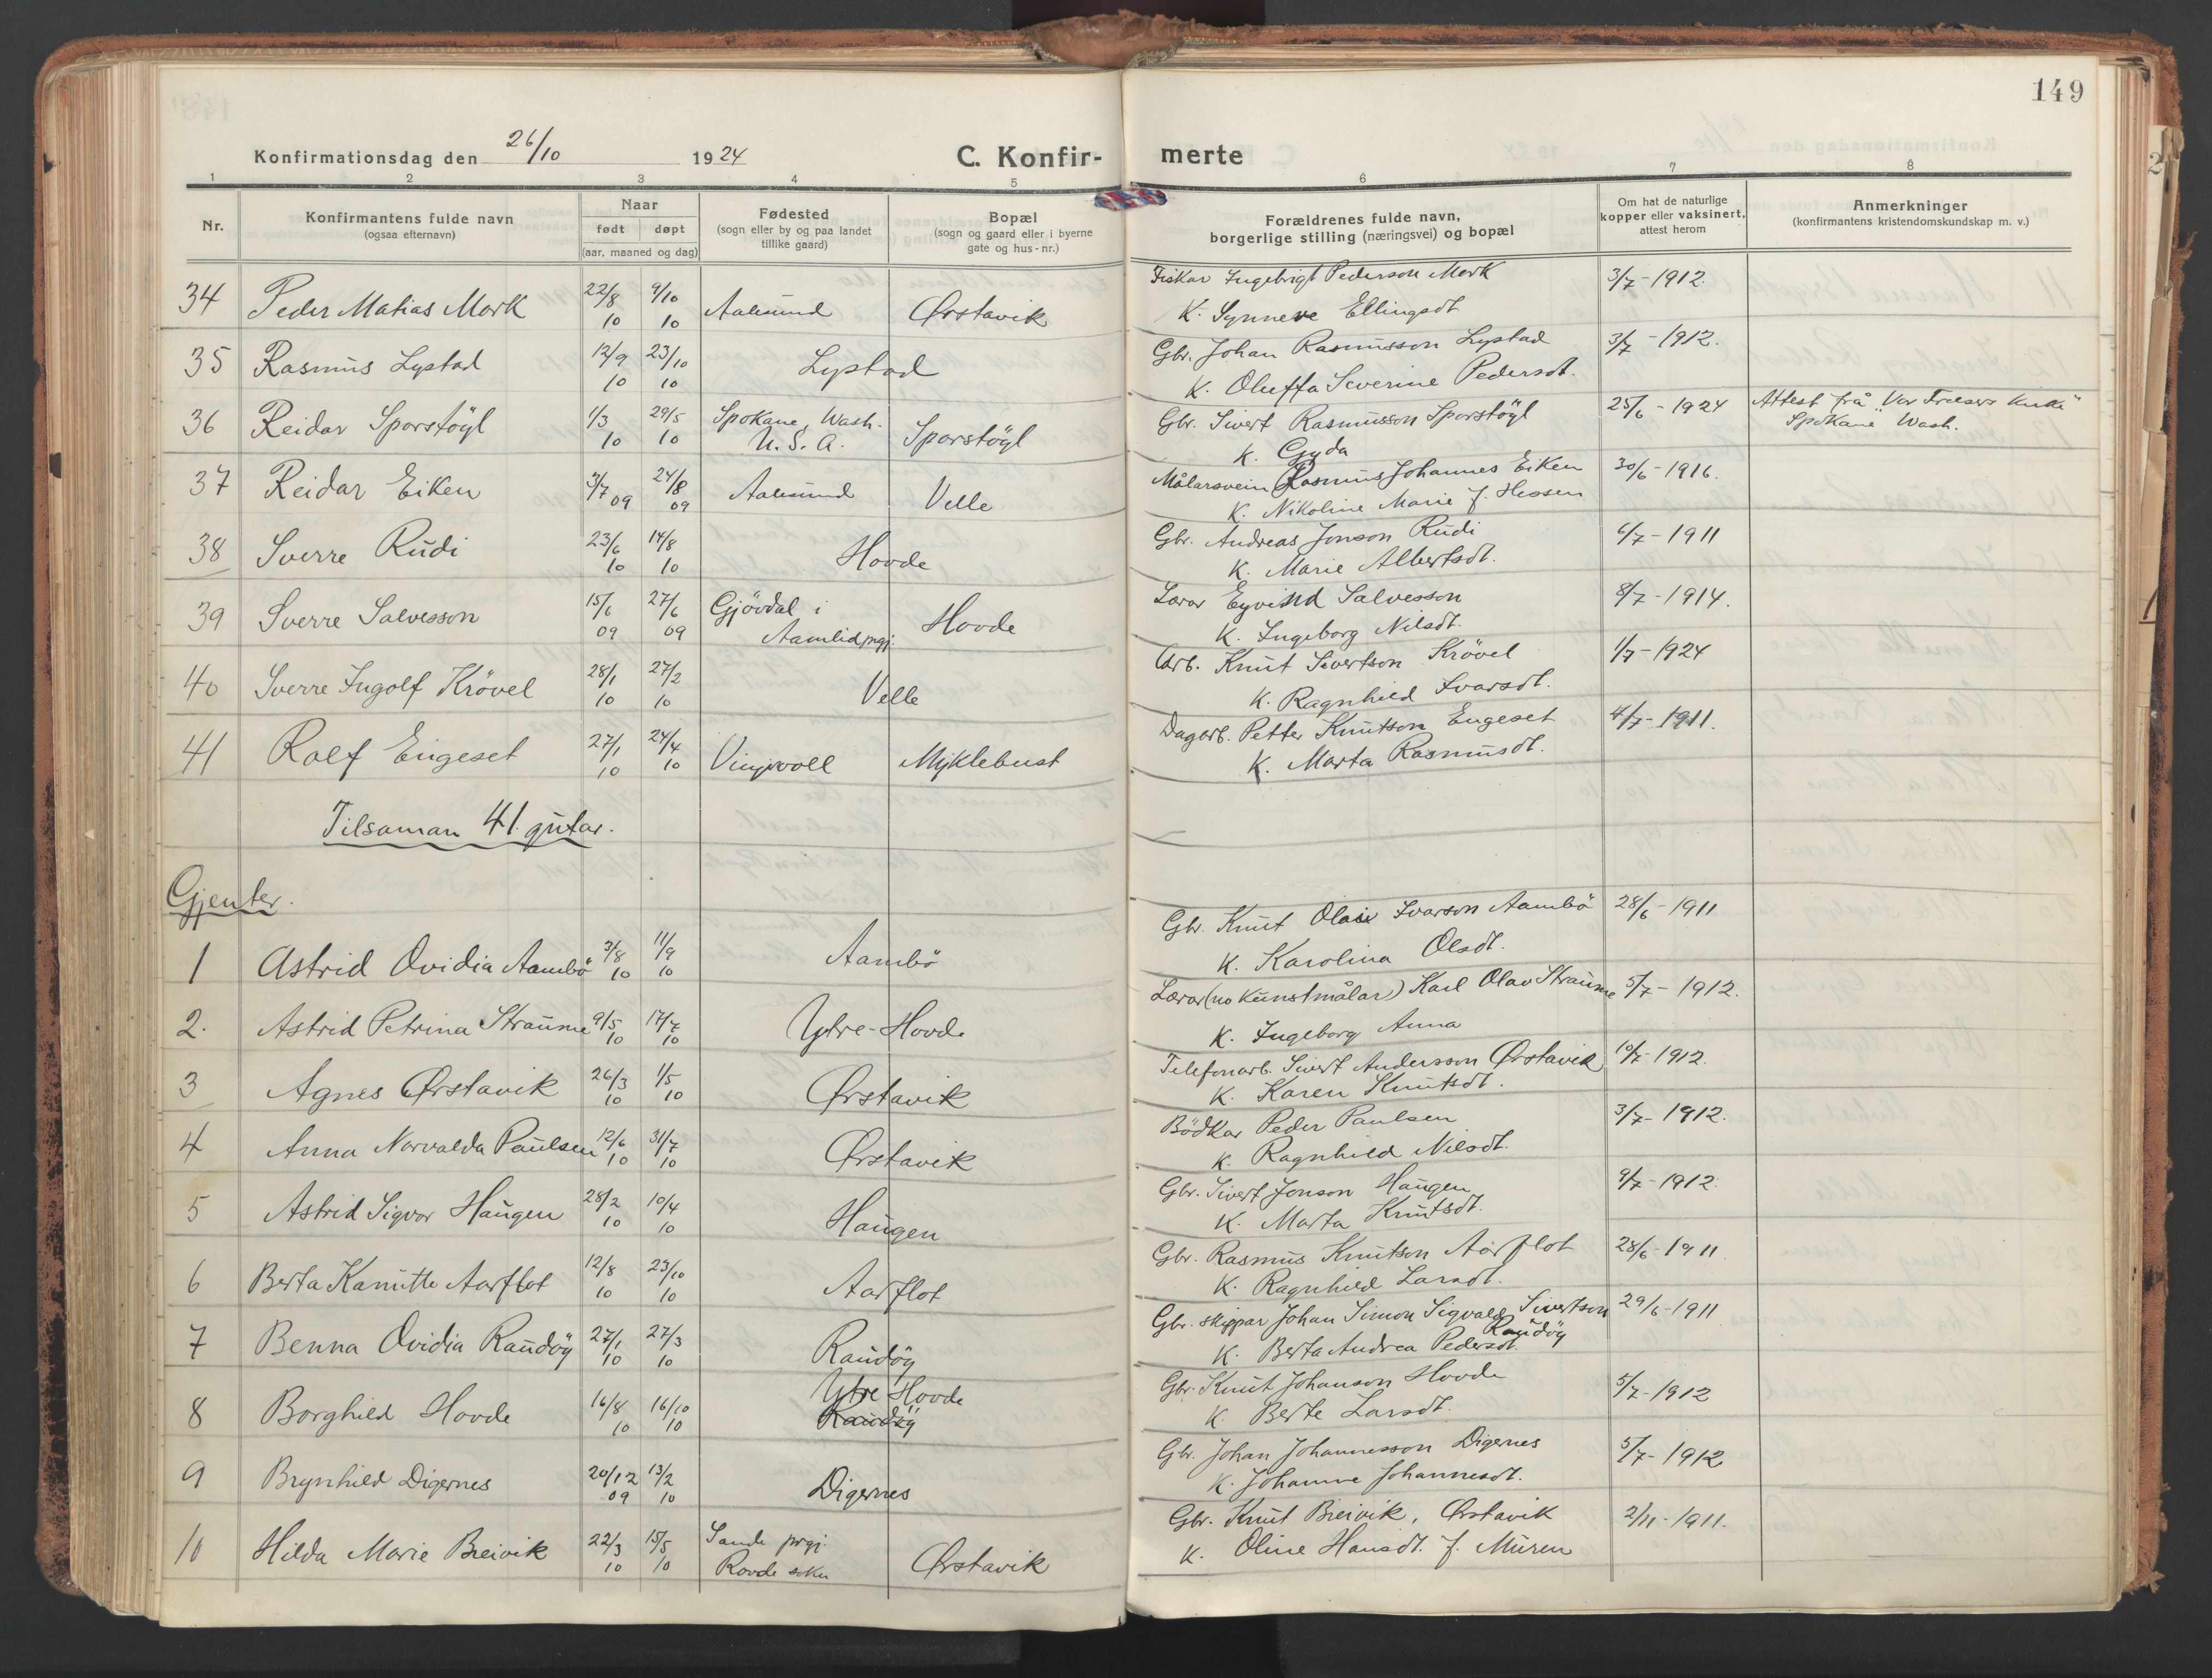 149
Konfirmationsdag den 26/10 1924 C. Konfir- merte
1 2 3 4 5 6 7 8
Nr. Konfirmantens fulde navn (ogsaa efternavn) Naar født døpt (aar, maaned og dag) Fødested (sogn eller by og paa landet tillike gaard) Bopæl (sogn og gaard eller i byerne gate og hus-nr.) Forældrenes fulde navn, borgerlige stilling (næringsvei) og bopæl Om hat de naturlige kopper eller vaksinert, attest herom Anmerkninger (konfirmantens kristendomskundskap m. v.)
34 Peder Matias Mork 22/8 10 9/10 10 Aalesund Ørstavik Fiskar Ingebrigt Pederson Mork 3/7-1912.
K. Synneve Ellingsdt
35 Rasmus Lystad 12/9 10 23/10 10 Lystad Gbr. Johan Rasmusson Lystad 3/7-1912.
K. Oluffa Severine Pedersdt.
36 Reidar Sporstöyl 1/3 10 29/5 10 Spokane, Wash. U.S.A. Sporstöyl Gbr. Sivert Rasmusson Sporstöyl 25/6-1924 Attest frå "Vor Frelsers Kirke"
K. Gyda Spokane Wash.
37 Reidar Eiken 3/7 09 24/8 09 Aalesund Velle Målarsvein Rasmus Johannes Eiken 30/6-1916.
K. Nikoline Marie f. Hessen
38 Sverre Rudi 23/6 10 14/8 10 Hovde Gbr. Andreas Jonson Rudi 6/7-1911
K. Marie Albertsdt.
39 Sverre Salvesson 15/6 09 27/6 09 Gjövdal i Aamlid prgj. Hovde Lærar Eyvind Salvesson 8/7-1914.
K. Ingeborg Nilsdt.
40 Sverre Ingolf Krövel 28/1 10 27/2 10 Velle Arb. Knut Sivertson Krövel 1/7-1924
K. Ragnhild Ivarsdt.
41 Rolf Engeset 27/1 10 24/4 10 Myklebust Dagarb. Petter Knutson Engeset 4/7-1911.
K. Marta Rasmusdt.
Tilsaman 41 gutar.
Gjenter.
1 Astrid Ovidia Aambö 3/8 10 11/9 10 Aambö Gbr. Knut Olai Ivarson Aambö 28/6-1911
K. Karolina Olsdt.
2. Astrid Petrina Straume 9/5 10 17/7 10 Ytre-Hovde Lærar (no Kunstmålar) Karl Olav Straume 5/7-1912.
K. Ingeborg Anna
3 Agnes Ørstavik 26/3 10 1/5 10 Ørstavik Telefonarb. Sivert Andersson Ørstavik 10/7-1912.
K. Karen Knutsdt.
4 Anna Norvalda Paulsen 12/6 10 31/7 10 Ørstavik Bödkar Peder Paulsen 3/7-1912.
K. Ragnhild Nilsdt.
5 Astrid Sigvor Haugen 28/2 10 10/4 10 Haugen Gbr. Sivert Jonson Haugen 9/7-1912.
K. Marta Knutsdt.
6 Berta Kanutte Aarflot 12/8 10 23/10 10 Aarflot Gbr. Rasmus Knutson Aarflot 28/6-1911
K. Ragnhild Larsdt.
7 Benna Ovidia Raudöy 27/1 10 27/3 10 Raudöy Gbr. skippar Johan Simon Sigvald Sivertson Raudöy 29/6-1911
K. Berta Andrea Pedersdt.
8 Borghild Hovde 16/8 10 16/10 10 Ytre Hovde Raudöy Gbr. Knut Johanson Hovde 5/7-1912
K. Berte Larsdt.
9 Brynhild Digernes 20/12 09 13/2 10 Digernes Gbr. Johan Johannesson Digernes 5/7-1912
K. Johanne Johannesdt.
10 Hilda Marie Breivik 22/3 10 15/5 10 Sande prgj. Rovde sokn Ørstavik Gbr. Knut Breivik, Ørstavik 2/11-1911.
K. Oline Hansdt. f. Muren